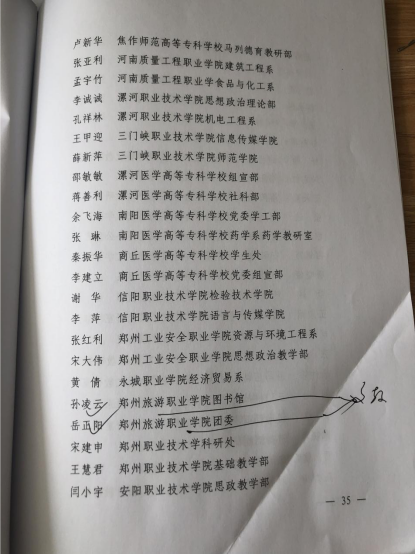 卢新华 焦作师范高等专科学校马列德育教研部
张亚利 河南质量工程职业学院建筑工程系
孟宇竹 河南质量工程职业学院食品与化工系
李诚诚 漯河职业技术学院思想政治理论部
孔祥林 漯河职业技术学院机电工程系
王甲迎 三门峡职业技术学院信息传媒学院
薛新萍 三门峡职业技术学院师范学院
邵敏敏 漯河医学高等专科学校组宣部
蒋善利 漯河医学高等专科学校社科部
余飞海 南阳医学高等专科学校党委学工部
张琳 南阳医学高等专科学校药学系药学教研室
秦振华 商丘医学高等专科学校学生处
李建立 商丘医学高等专科学校党委组宣部
谢华 信阳职业技术学院检验技术学院
李萍 信阳职业技术学院语言与传媒学院
张红利 郑州工业安全职业学院资源与环境工程系
宋大伟 郑州工业安全职业学院思想政治教学部
黄倩 永城职业学院经济贸易系
孙凌云 郑州旅游职业学院图书馆
岳正阳 郑州旅游职业学院团委
宋建申 郑州职业技术学科研处
王慧君 郑州职业技术学院基础教学部
闫小宇 安阳职业技术学院思政教学部
— 35 —